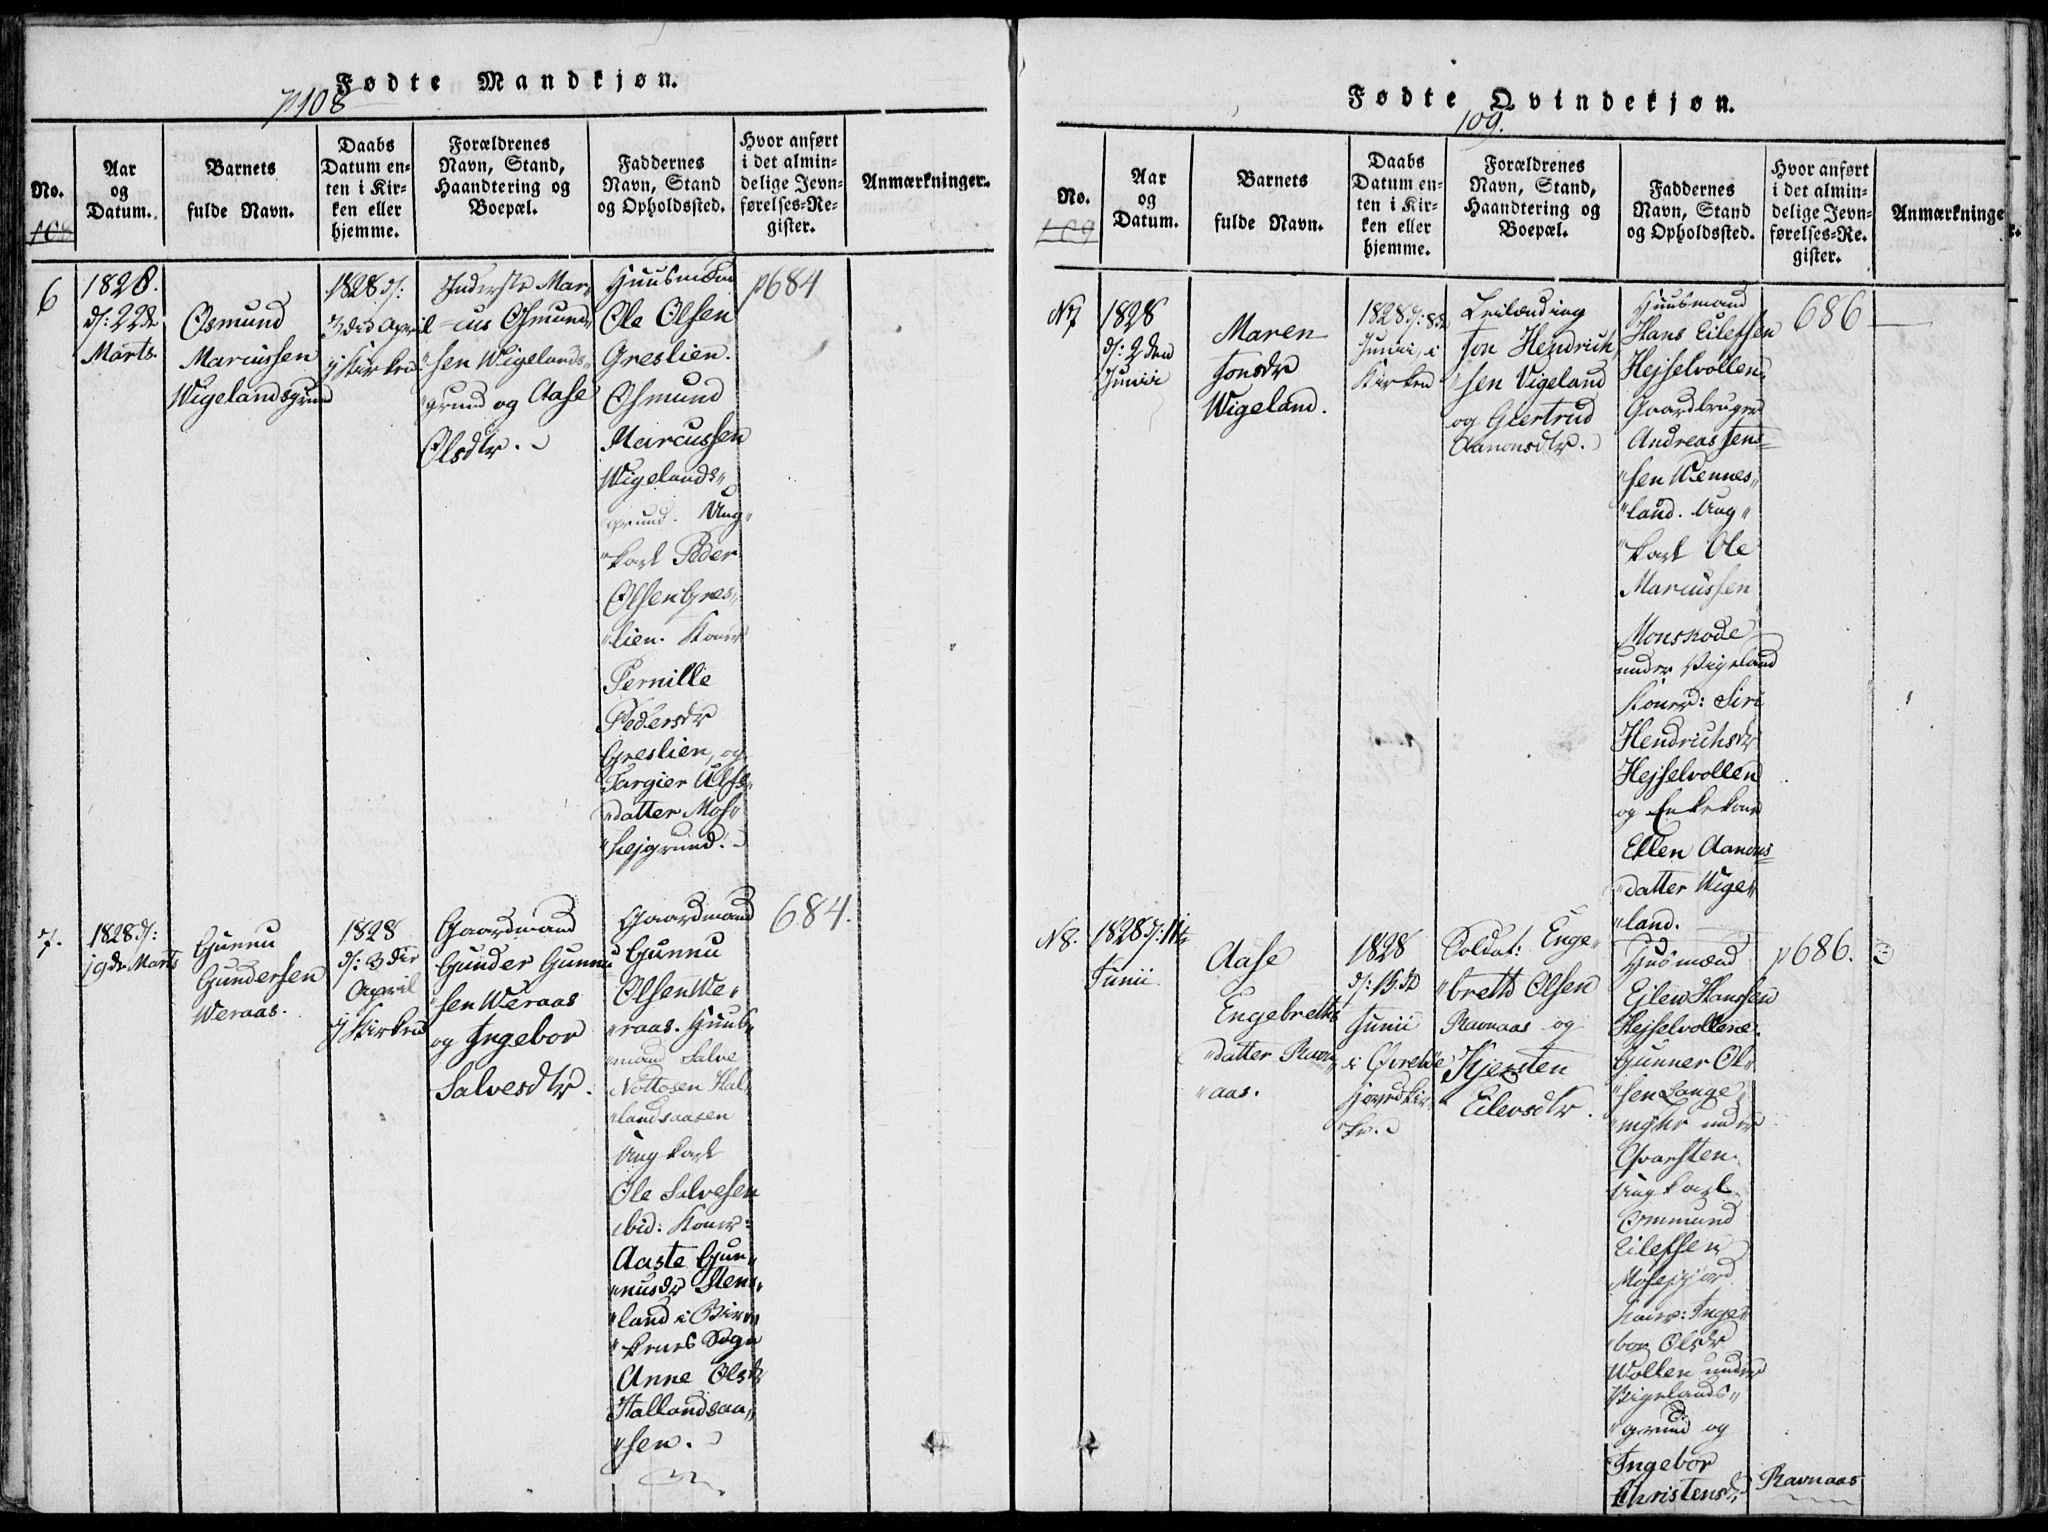 Fødte Mandkjøn.
p 108
No.
108
Aar
og
Datum.
Barnets
fulde Navn.
Daabs
Datum en-
ten i Kir-
ken eller
hjemme.
Forældrenes
Navn, Stand,
Haandtering og
Boepæl.
Faddernes
Navn, Stand
og Opholdssted.
Hvor anført
i det almin-
delige Jevn-
førelses-Re-
gister.
Anmærkninger.
6
1828.
d: 22de
Marts.
Osmund
Marcussen
Wigelandsgrund
1828 d:
3die April
i Kirken
Inderste Mar-
cus Osmund
sen Wigelands-
grund og Aase
Olsdtr.
Huusmænd
Ole Olsen
Greslien.
Osmund
Marcussen
Wigelands-
grund. Ung-
karl Peder
Olsen Gres-
lien. Koner
Pernille
Pedersdr
Greslien, og
Targier Ulfs-
datter Mos-
hejgrund.
p 684
7.
1828 d:
19de Marts
Gunnu
Gundersen
Weraas.
1828
d: 3die
April
i Kirken
Gaardmand
Gunder Gunnu
sen Weraas
og Ingebor
Salvesdtr.
Gaardmand
Gunnu
Olsen We-
raas. Huus-
mand Salve
Nottosen Hal-
landsaasen
Ungkarl
Ole Salvesen
ibid: Koner:
Aaste Gun-
nusdr Sten-
land i Birke-
kenes Sogn
Anne Olsdr
Hallandsaa-
sen.
684.
Fødte Qvindekjøn.
109.
No.
109
Aar
og
Datum.
Barnets
fulde Navn.
Daabs
Datum en-
ten i Kir-
ken eller
hjemme.
Forældrenes
Navn, Stand,
Haandtering og
Boepæl.
Faddernes
Navn, Stand
og Opholdssted.
Hvor anført
i det almin-
delige Jevn-
førelses-Re-
gister.
Anmærkninge
r.
N7
1828
d: 2den
Junii
Maren
Jonsdr
Wigeland.
1828 d: 8de
Junii, i
Kirken
Leilænding
Jon Hendrich
sen Vigeland
og Giertrud
Aanonsdtr.
Huusmand
Hans Eilefsen
Hejselvollen.
Gaardbruger
Andreas Jens-
sen Wennes-
land. Ung-
karl Ole
Marcussen
Monskode
under Vigeland
Koner: Siri
Hendrichsdr
Hejselvollen
og Enkekone
Ellen Aanons
datter Wige-
land.
686
N8.
1828 d: 11te
Junii
Aase
Engebreths
datter Ravn-
aas.
1828
d: 15de
Junii
i Øvreboe
hovedkir-
ke.
Soldat: Enge-
breth Olsen
Ravnaas og
Kjersten
Eilevsdtr.
Husmænd
Ejlew Hanssen
Hejselvollene.
Gunner Ol-
sen Lange-
myhr under
Qvarsten.
Ungkarl
Ommund
Eilefsen
Mosefjord
Koner: Inge-
bor Olsdr
Wollen under
Vigelands-
grund og
Ingebor
Christensdr
Ravnaas
p 686.